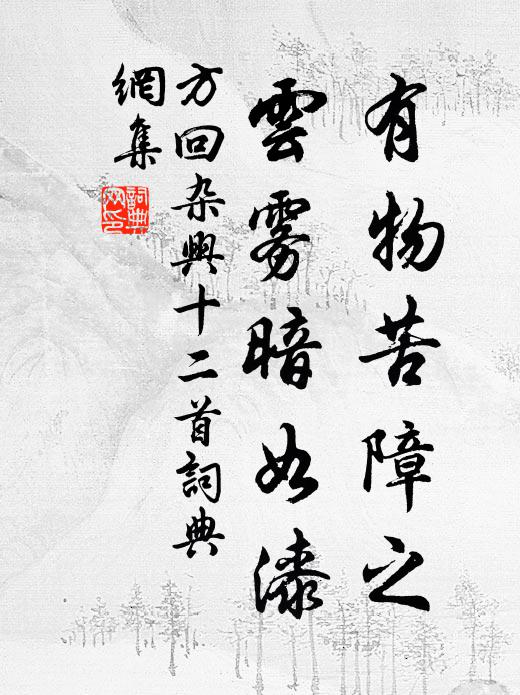 有物苦障之
雲雾暗如漆
方回杂興十二首詞典
網集
詞典網印